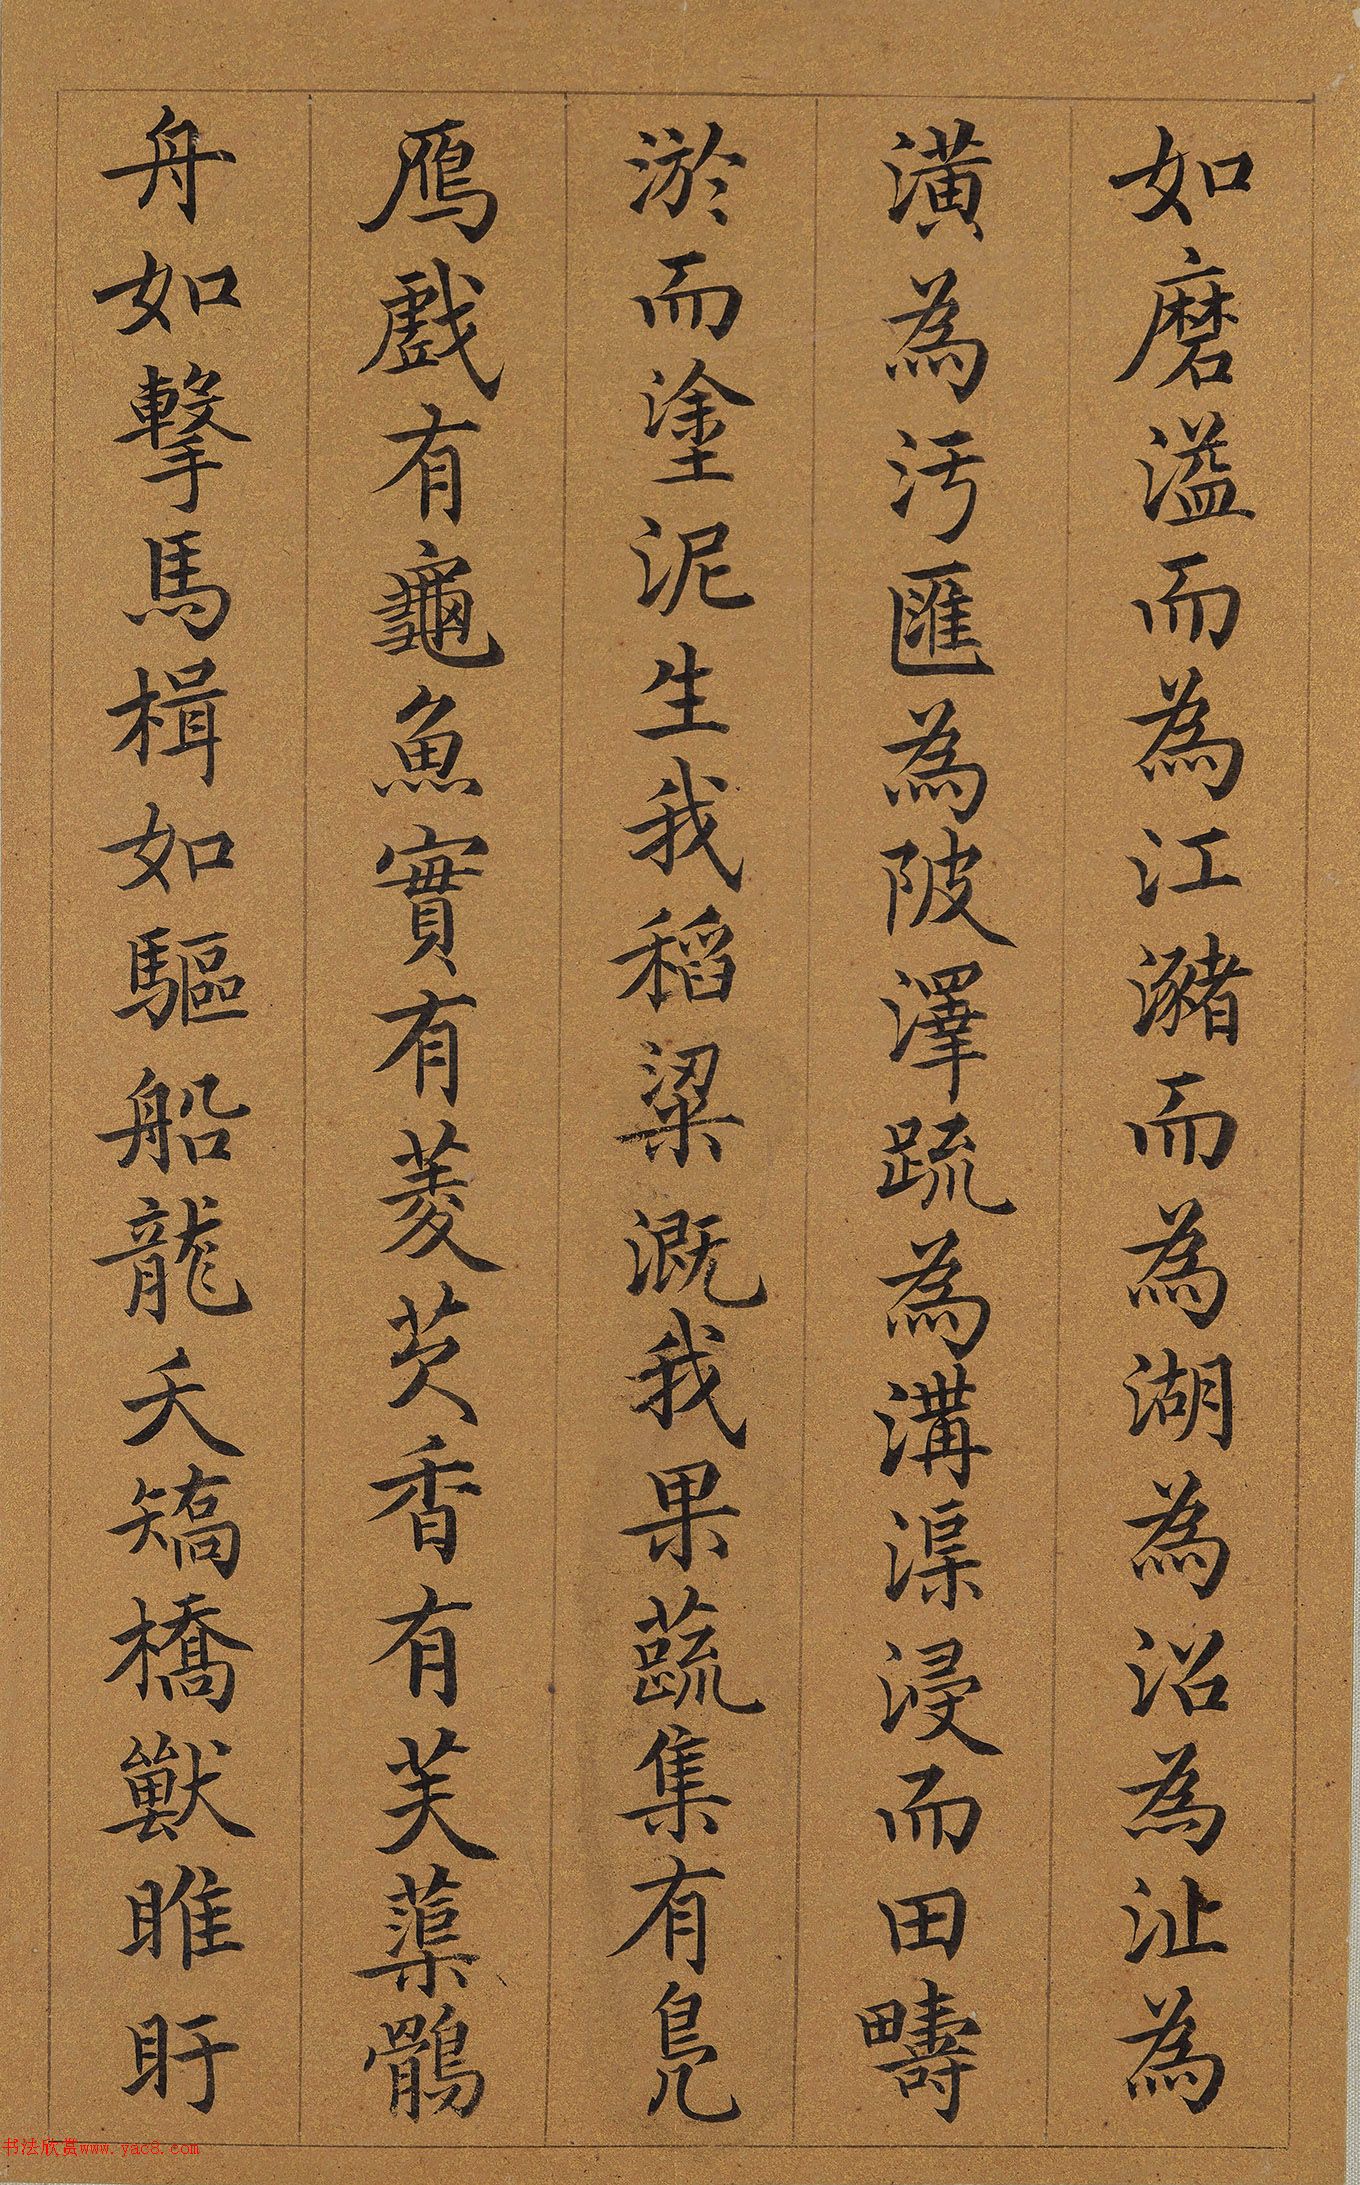 如磨溢而為江瀦而為湖為沼為沚為
潢為汚匯為陂澤疏為溝渠浸而田疇
淤而塗泥生我稻粱溉我果蔬集有鳧
鴈戲有龜魚實有菱芡香有芙蕖鶻
舟如擊馬楫如驅船龍夭矯橋獸睢盱
书法欣赏www.yac8.com